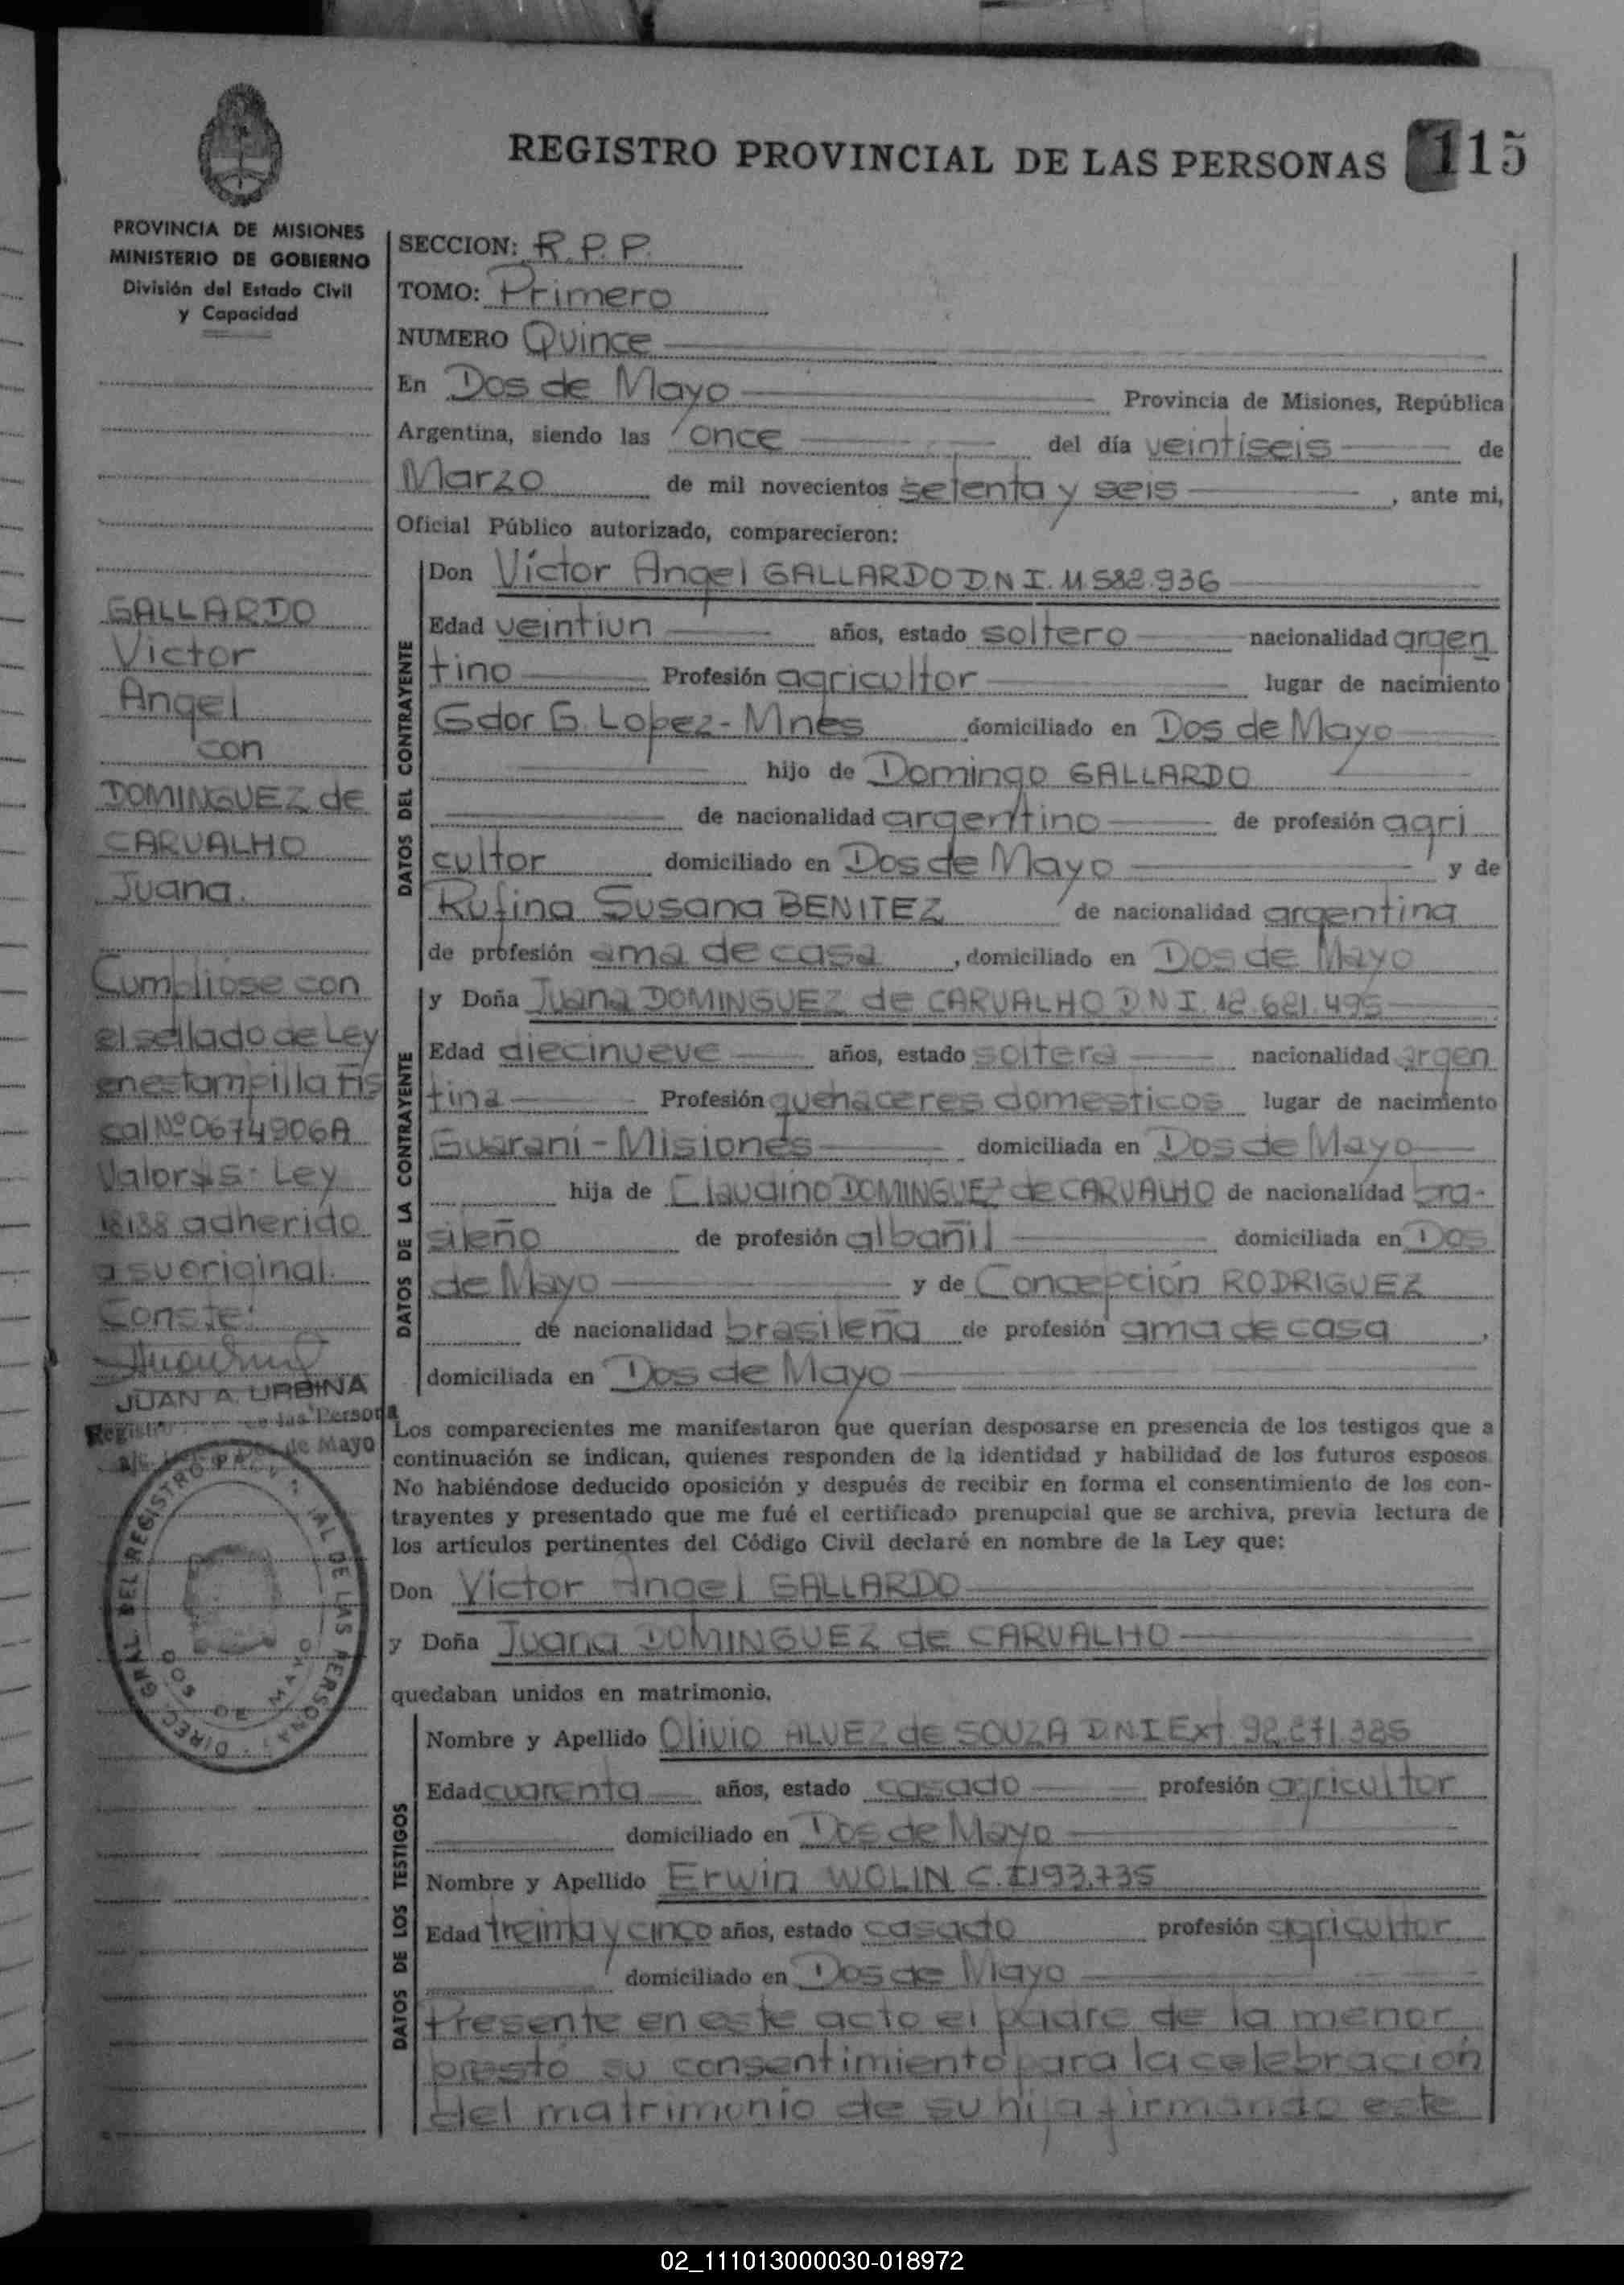 REGISTRO PROVINCIAL DE LAS PERSONAS 115
PROVINCIA DE MISIONES
MINISTERIO DE GOBIERNO
División del Estado Civil
y Capacidad
GALLARDO
Victor
Angel
con
DOMINGUEZ de
CARVALHO
Juana.
Cumplióse con
el sellado de Ley
en estampilla fis
cal Nº 0674906A
Ley
18188 adherido
a su original.
Conste:
JUAN A. URBINA
de las Persona
de Mayo
DIREC. GRAL. DEL REGISTRO DE LAS PERSONAS
DOS DE MAYO
SECCION: R.P.P.
TOMO: Primero
NUMERO Quince
En Dos de Mayo Provincia de Misiones, República
Argentina, siendo las once del día veintiseis de
Marzo de mil novecientos setenta y seis, ante mi,
Oficial Público autorizado, comparecieron:
DATOS DEL CONTRAYENTE
Don Víctor Angel GALLARDO D.N.I. 11.582.936
Edad veintiun años, estado soltero nacionalidad argen
tino Profesión agricultor lugar de nacimiento
Gdor G. Lopez-Mnes domiciliado en Dos de Mayo
hijo de Domingo GALLARDO
de nacionalidad argentino de profesión agri
cultor domiciliado en Dos de Mayo y de
Rufina Susana BENITEZ de nacionalidad argentina
de profesión ama de casa, domiciliado en Dos de Mayo
DATOS DE LA CONTRAYENTE
y Doña Juana DOMINGUEZ de CARVALHO D N I. 12.621.495
Edad diecinueve años, estado soltera nacionalidad argen
tina Profesión quehaceres domesticos lugar de nacimiento
Guaraní-Misiones domiciliada en Dos de Mayo
hija de Claudino DOMINGUEZ de CARVALHO de nacionalidad bra-
sileño de profesión albañil domiciliada en Dos
de Mayo y de Concepción RODRIGUEZ
de nacionalidad brasileña de profesión ama de casa,
domiciliada en Dos de Mayo
Los comparecientes me manifestaron que querían desposarse en presencia de los testigos que a
continuación se indican, quienes responden de la identidad y habilidad de los futuros esposos.
No habiéndose deducido oposición y después de recibir en forma el consentimiento de los con-
trayentes y presentado que me fué el certificado prenupcial que se archiva, previa lectura de
los artículos pertinentes del Código Civil declaré en nombre de la Ley que:
Don Víctor Angel GALLARDO
y Doña Juana DOMINGUEZ de CARVALHO
quedaban unidos en matrimonio.
DATOS DE LOS TESTIGOS
Nombre y Apellido Olivio ALVEZ de SOUZA D.N.I Ext.
Edad cuarenta años, estado casado profesión agricultor
domiciliado en Dos de Mayo
Nombre y Apellido Erwin WOLIN C.I 193.735
Edad treinta y cinco años, estado casado profesión agricultor
domiciliado en Dos de Mayo
Presente en este acto el padre de la menor
prestó su consentimiento para la celebración
del matrimonio de su hija firmando este
02_111013000030-018972